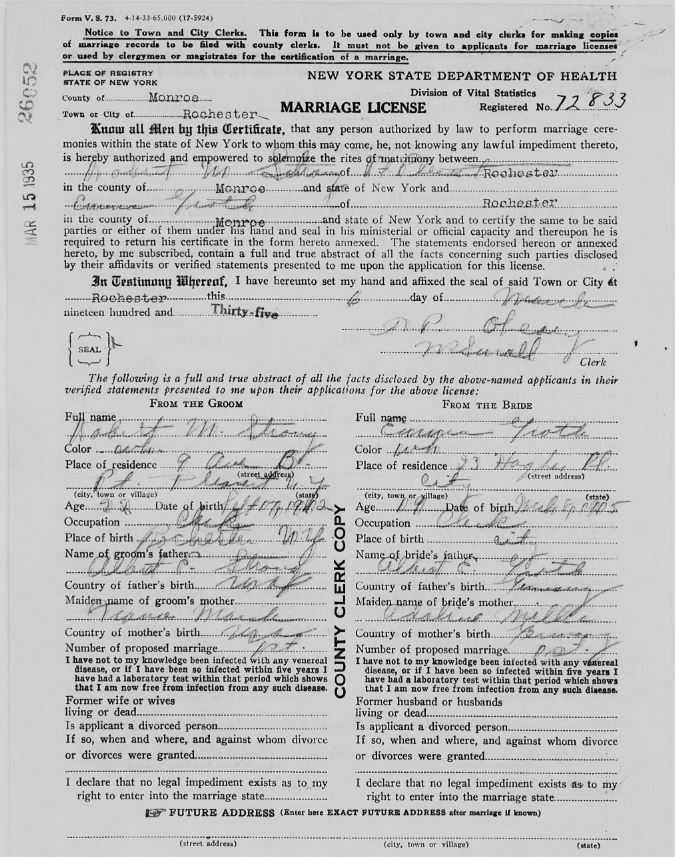 Form V. S. 73. 4-14-33-65,000 (17-5924)
Notice to Town and City Clerks. This form is to be used only by town and city clerks for making copies
of marriage records to be filed with county clerks. It must not be given to applicants for marriage licenses
or used by clergymen or magistrates for the certification of a marriage.
26052
MAR 15 1935
PLACE OF REGISTRY
STATE OF NEW YORK
NEW YORK STATE DEPARTMENT OF HEALTH
County of Monroe
Division of Vital Statistics
Town or City of Rochester
MARRIAGE LICENSE
Registered No. 72833
Know all Men by this Certificate, that any person authorized by law to perform marriage cere-
monies within the state of New York to whom this may come, he, not knowing any lawful impediment thereto,
is hereby authorized and empowered to solemnize the rites of matrimony between
Robert M. Strong of Pt Pleasant Rochester
in the county of Monroe and state of New York and
Emma Groth of Rochester
in the county of Monroe and state of New York and to certify the same to be said
parties or either of them under his hand and seal in his ministerial or official capacity and thereupon he is
required to return his certificate in the form hereto annexed. The statements endorsed hereon or annexed
hereto, by me subscribed, contain a full and true abstract of all the facts concerning such parties disclosed
by their affidavits or verified statements presented to me upon the application for this license.
In Testimony Whereof, I have hereunto set my hand and affixed the seal of said Town or City at
Rochester this 6 day of March
nineteen hundred and Thirty-five
SEAL
Clerk
The following is a full and true abstract of all the facts disclosed by the above-named applicants in their
verified statements presented to me upon their applications for the above license:
FROM THE GROOM
Full name
Robert M. Strong
Color wh
Place of residence 9 Ave B.
(street address)
Pt. Pleasant N Y
(city, town or village) (state)
Age 22 Date of birth Sept
Occupation Clerk
Place of birth Rochester N.Y.
Name of groom's father
Albert C. Strong
Country of father's birth
Maiden name of groom's mother
Country of mother's birth
Number of proposed marriage 1st.
I have not to my knowledge been infected with any venereal
disease, or if I have been so infected within five years I
have had a laboratory test within that period which shows
that I am now free from infection from any such disease.
Former wife or wives
living or dead
Is applicant a divorced person
If so, when and where, and against whom divorce
or divorces were granted
I declare that no legal impediment exists as to my
right to enter into the marriage state
COUNTY CLERK COPY
FROM THE BRIDE
Full name
Emma Groth
Color wh
Place of residence 23 Pl.
(street address)
city
(city, town or village) (state)
Age Date of birth
Occupation Clerk
Place of birth city
Name of bride's father
Albert E. Groth
Country of father's birth Germany
Maiden name of bride's mother
Country of mother's birth Germany
Number of proposed marriage
I have not to my knowledge been infected with any venereal
disease, or if I have been so infected within five years I
have had a laboratory test within that period which shows
that I am now free from infection from any such disease.
Former husband or husbands
living or dead
Is applicant a divorced person
If so, when and where, and against whom divorce
or divorces were granted
I declare that no legal impediment exists as to my
right to enter into the marriage state
☞ FUTURE ADDRESS (Enter here EXACT FUTURE ADDRESS after marriage if known)
(street address) (city, town or village) (state)